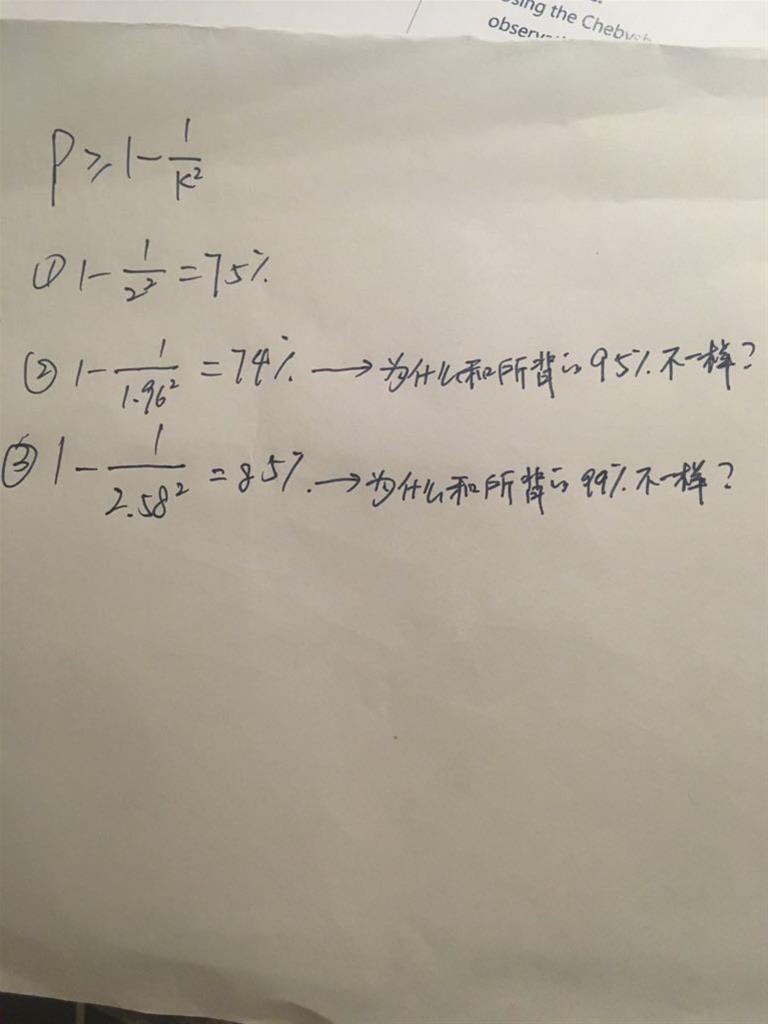 sing the Cheby
observ
P ≥ 1 - 1/K²
① 1 - 1/2² = 75%
② 1 - 1/1.96² = 74% → 为什么和所背的95%不一样?
③ 1 - 1/2.58² = 85%. → 为什么和所背的99%不一样?